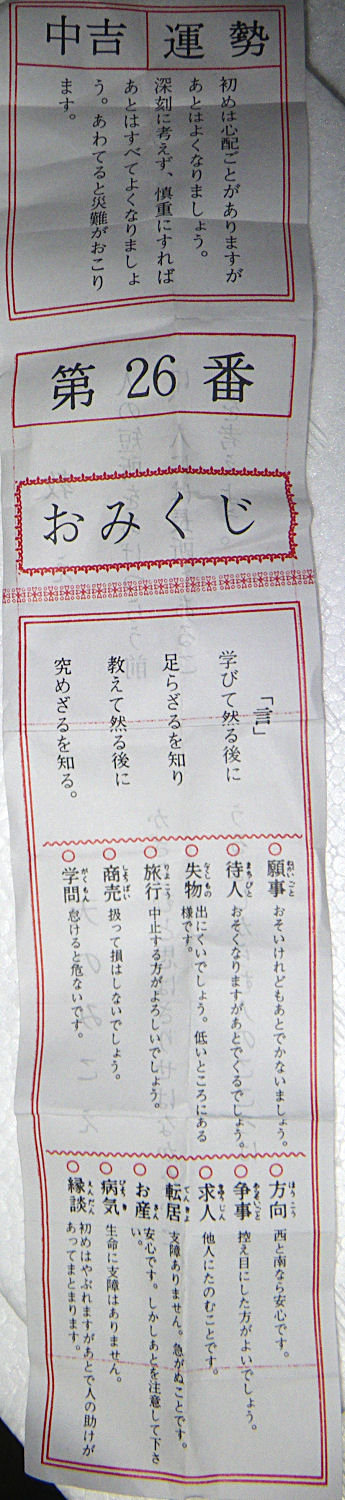 中吉 運勢
初めは心配ごとがありますが
あとはよくなりましょう。
深刻に考えず、慎重にすれば
あとはすべてよくなりましょ
う。あわてると災難がおこり
ます。
第26番
おみくじ
「言」
学びて然る後に
足らざるを知り
教えて然る後に
究めざるを知る。
○願事 おそいけれどもあとでかないましょう。
○待人 おそくなりますがあとでくるでしょう。
○失物 出にくいでしょう。低いところにある
様です。
○旅行 中止する方がよろしいでしょう。
○商売 扱って損はしないでしょう。
○学問 怠けると危ないです。
○方向 西と南なら安心です。
○争事 控え目にした方がよいでしょう。
○求人 他人にたのむことです。
○転居 支障ありません。急がぬことです。
○お産 安心です。しかしあとを注意して下さ
い。
○病気 生命に支障はありません。
○縁談 初めはやぶれますがあとで人の助けが
あってまとまります。